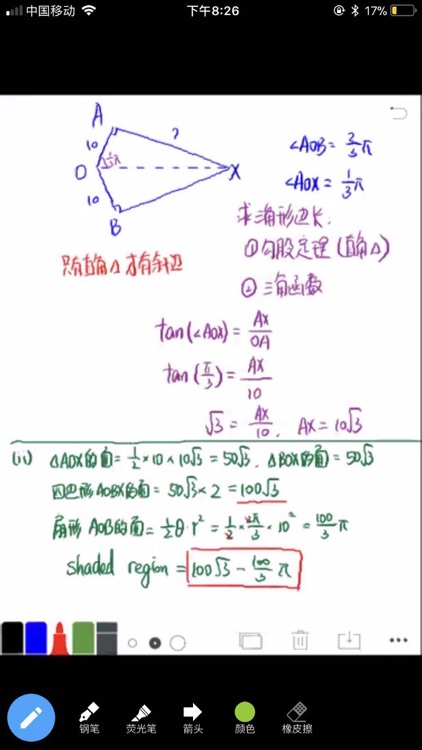 中国移动 下午8:26 17%
A
10 ?
O ⅓π X
10
B
∠AOB = 2/3 π
∠AOX = 1/3 π
求三角形边长:
① 勾股定理 (直角△)
② 三角函数
只有直角△才有斜边
tan(∠AOX) = AX/OA
tan(π/3) = AX/10
√3 = AX/10, AX = 10√3
(ii) △AOX的面 = 1/2 × 10 × 10√3 = 50√3, △BOX的面 = 50√3
四边形AOBX的面 = 50√3 × 2 = 100√3
扇形AOB的面 = 1/2 θ·r² = 1/2 × 2π/3 × 10² = 100/3 π
shaded region = 100√3 - 100/3 π
钢笔 荧光笔 箭头 颜色 橡皮擦